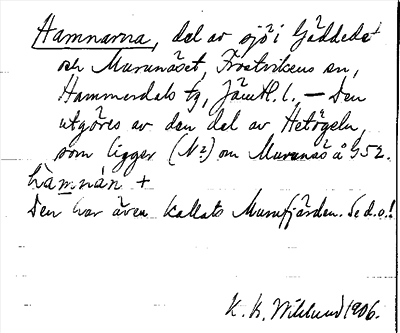 Hamnarna, del av sjö i Gäddede
och Murunäset, Frostvikens sn,
Hammerdals tg, Jämtl. l. — Den
utgöres av den del av Hetögeln,
som ligger (N?) om Murunäs å 952.
hàmnán +
Den har även kallats Murufjärden. Se d.o.!
K. B. Wiklund 1906.